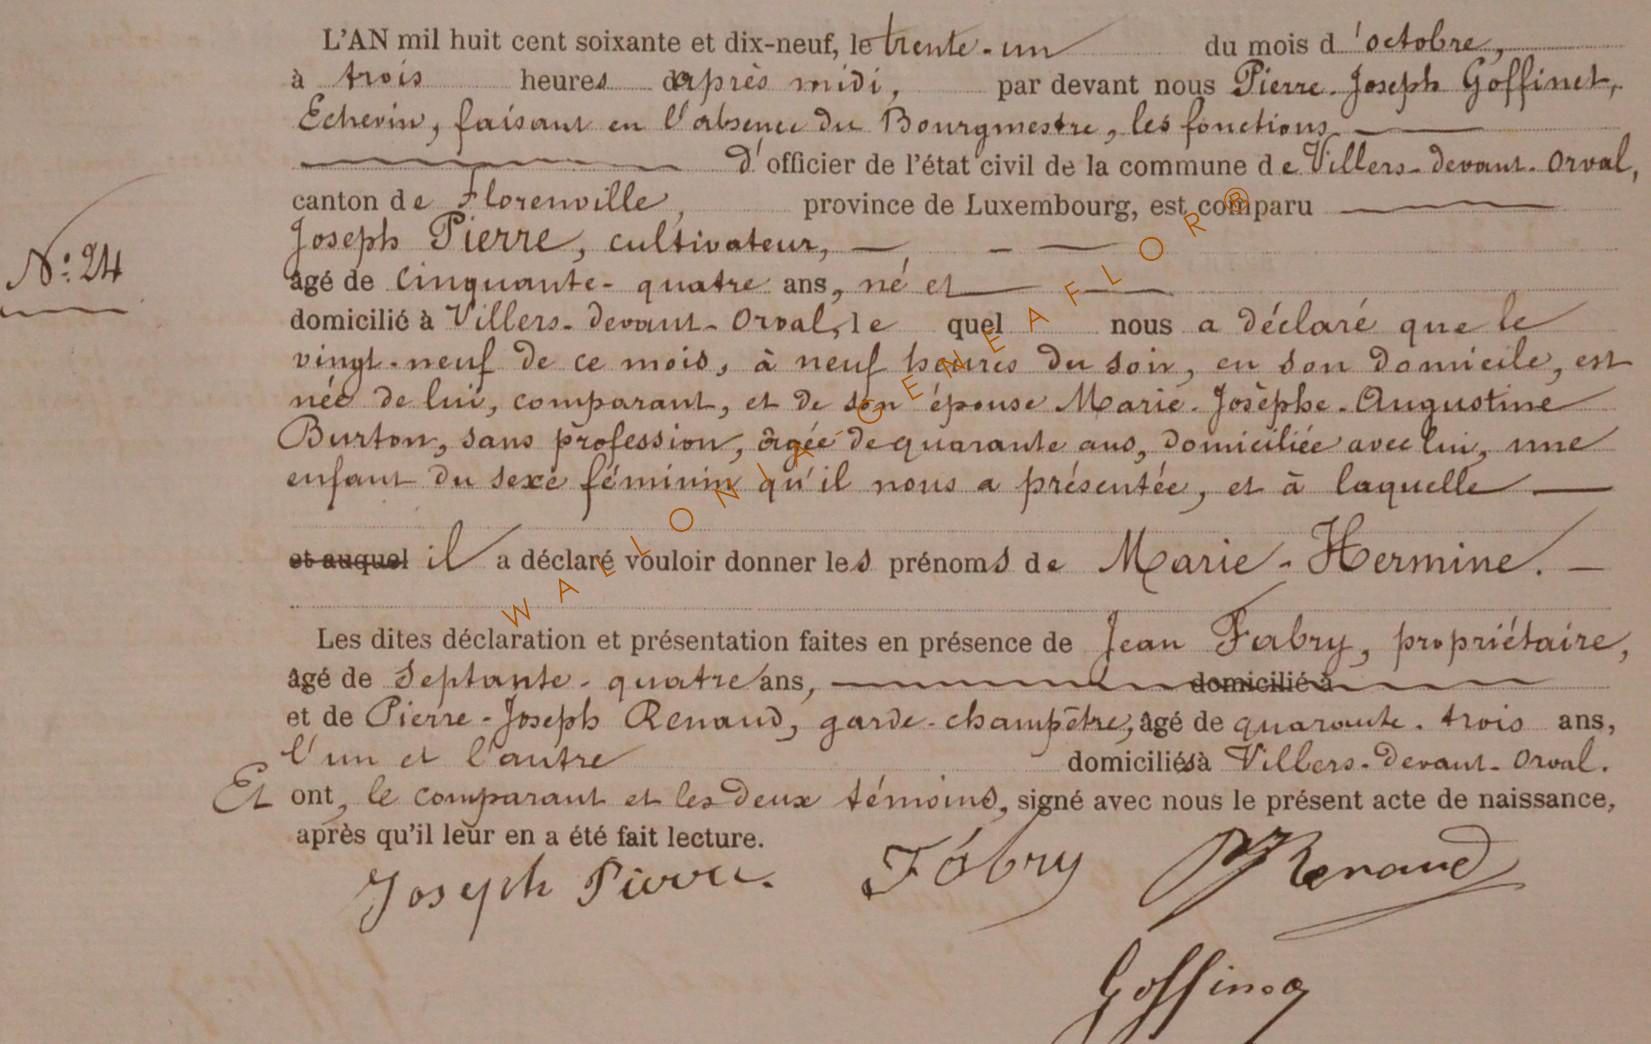 L'AN mil huit cent soixante et dix-neuf, le trente-un du mois d'octobre,
à trois heures d'après midi, par devant nous Pierre-Joseph Goffinet,
Echevin, faisant en l'absence du Bourgmestre, les fonctions
d'officier de l'état civil de la commune de Villers-devant-Orval,
canton de Florenville, province de Luxembourg, est comparu
Joseph Pierre, cultivateur,
N° 24
âgé de cinquante-quatre ans, né et
domicilié à Villers-devant-Orval, le quel nous a déclaré que le
vingt-neuf de ce mois, à neuf heures du soir, en son domicile, est
née de lui, comparant, et de son épouse Marie-Josèphe-Augustine
Burton, sans profession, âgée de quarante ans, domiciliée avec lui, une
enfant du sexe féminin qu'il nous a présentée, et à laquelle
et auquel il a déclaré vouloir donner les prénoms de Marie-Hermine.
Les dites déclaration et présentation faites en présence de Jean Fabry, propriétaire,
âgé de septante-quatre ans, domicilié à
et de Pierre-Joseph Renaud, garde-champêtre, âgé de quarante-trois ans,
l'un et l'autre domiciliés à Villers-devant-Orval.
Et ont, le comparant et les deux témoins, signé avec nous le présent acte de naissance,
après qu'il leur en a été fait lecture.
Joseph Pierre. Fabry PJRenaud
Goffinet
WALLONIA-GENEAFLOR®